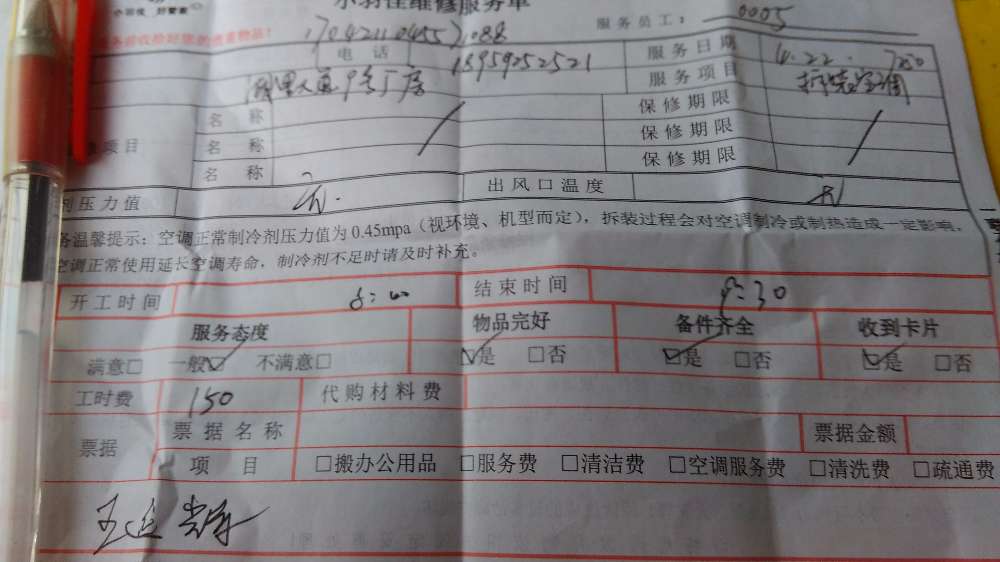 小羽佳 好管家
维修服务单
服务员工: 0005
务前收检好您的贵重物品!
电话 13959252521
服务日期 4.22.
服务项目
名称 保修期限
项目 名称 保修期限
名称 保修期限
剂压力值 出风口温度
务温馨提示:空调正常制冷剂压力值为0.45mpa(视环境、机型而定),拆装过程会对空调制冷或制热造成一定影响,
空调正常使用延长空调寿命,制冷剂不足时请及时补充。
开工时间 结束时间 :30
服务态度 物品完好 备件齐全 收到卡片
满意□ 一般☑ 不满意□ ☑是 □否 ☑是 □否 ☑是 □否
工时费 150 代购材料费
票据 票据名称 票据金额
项目 □搬办公用品 □服务费 □清洁费 □空调服务费 □清洗费 □疏通费